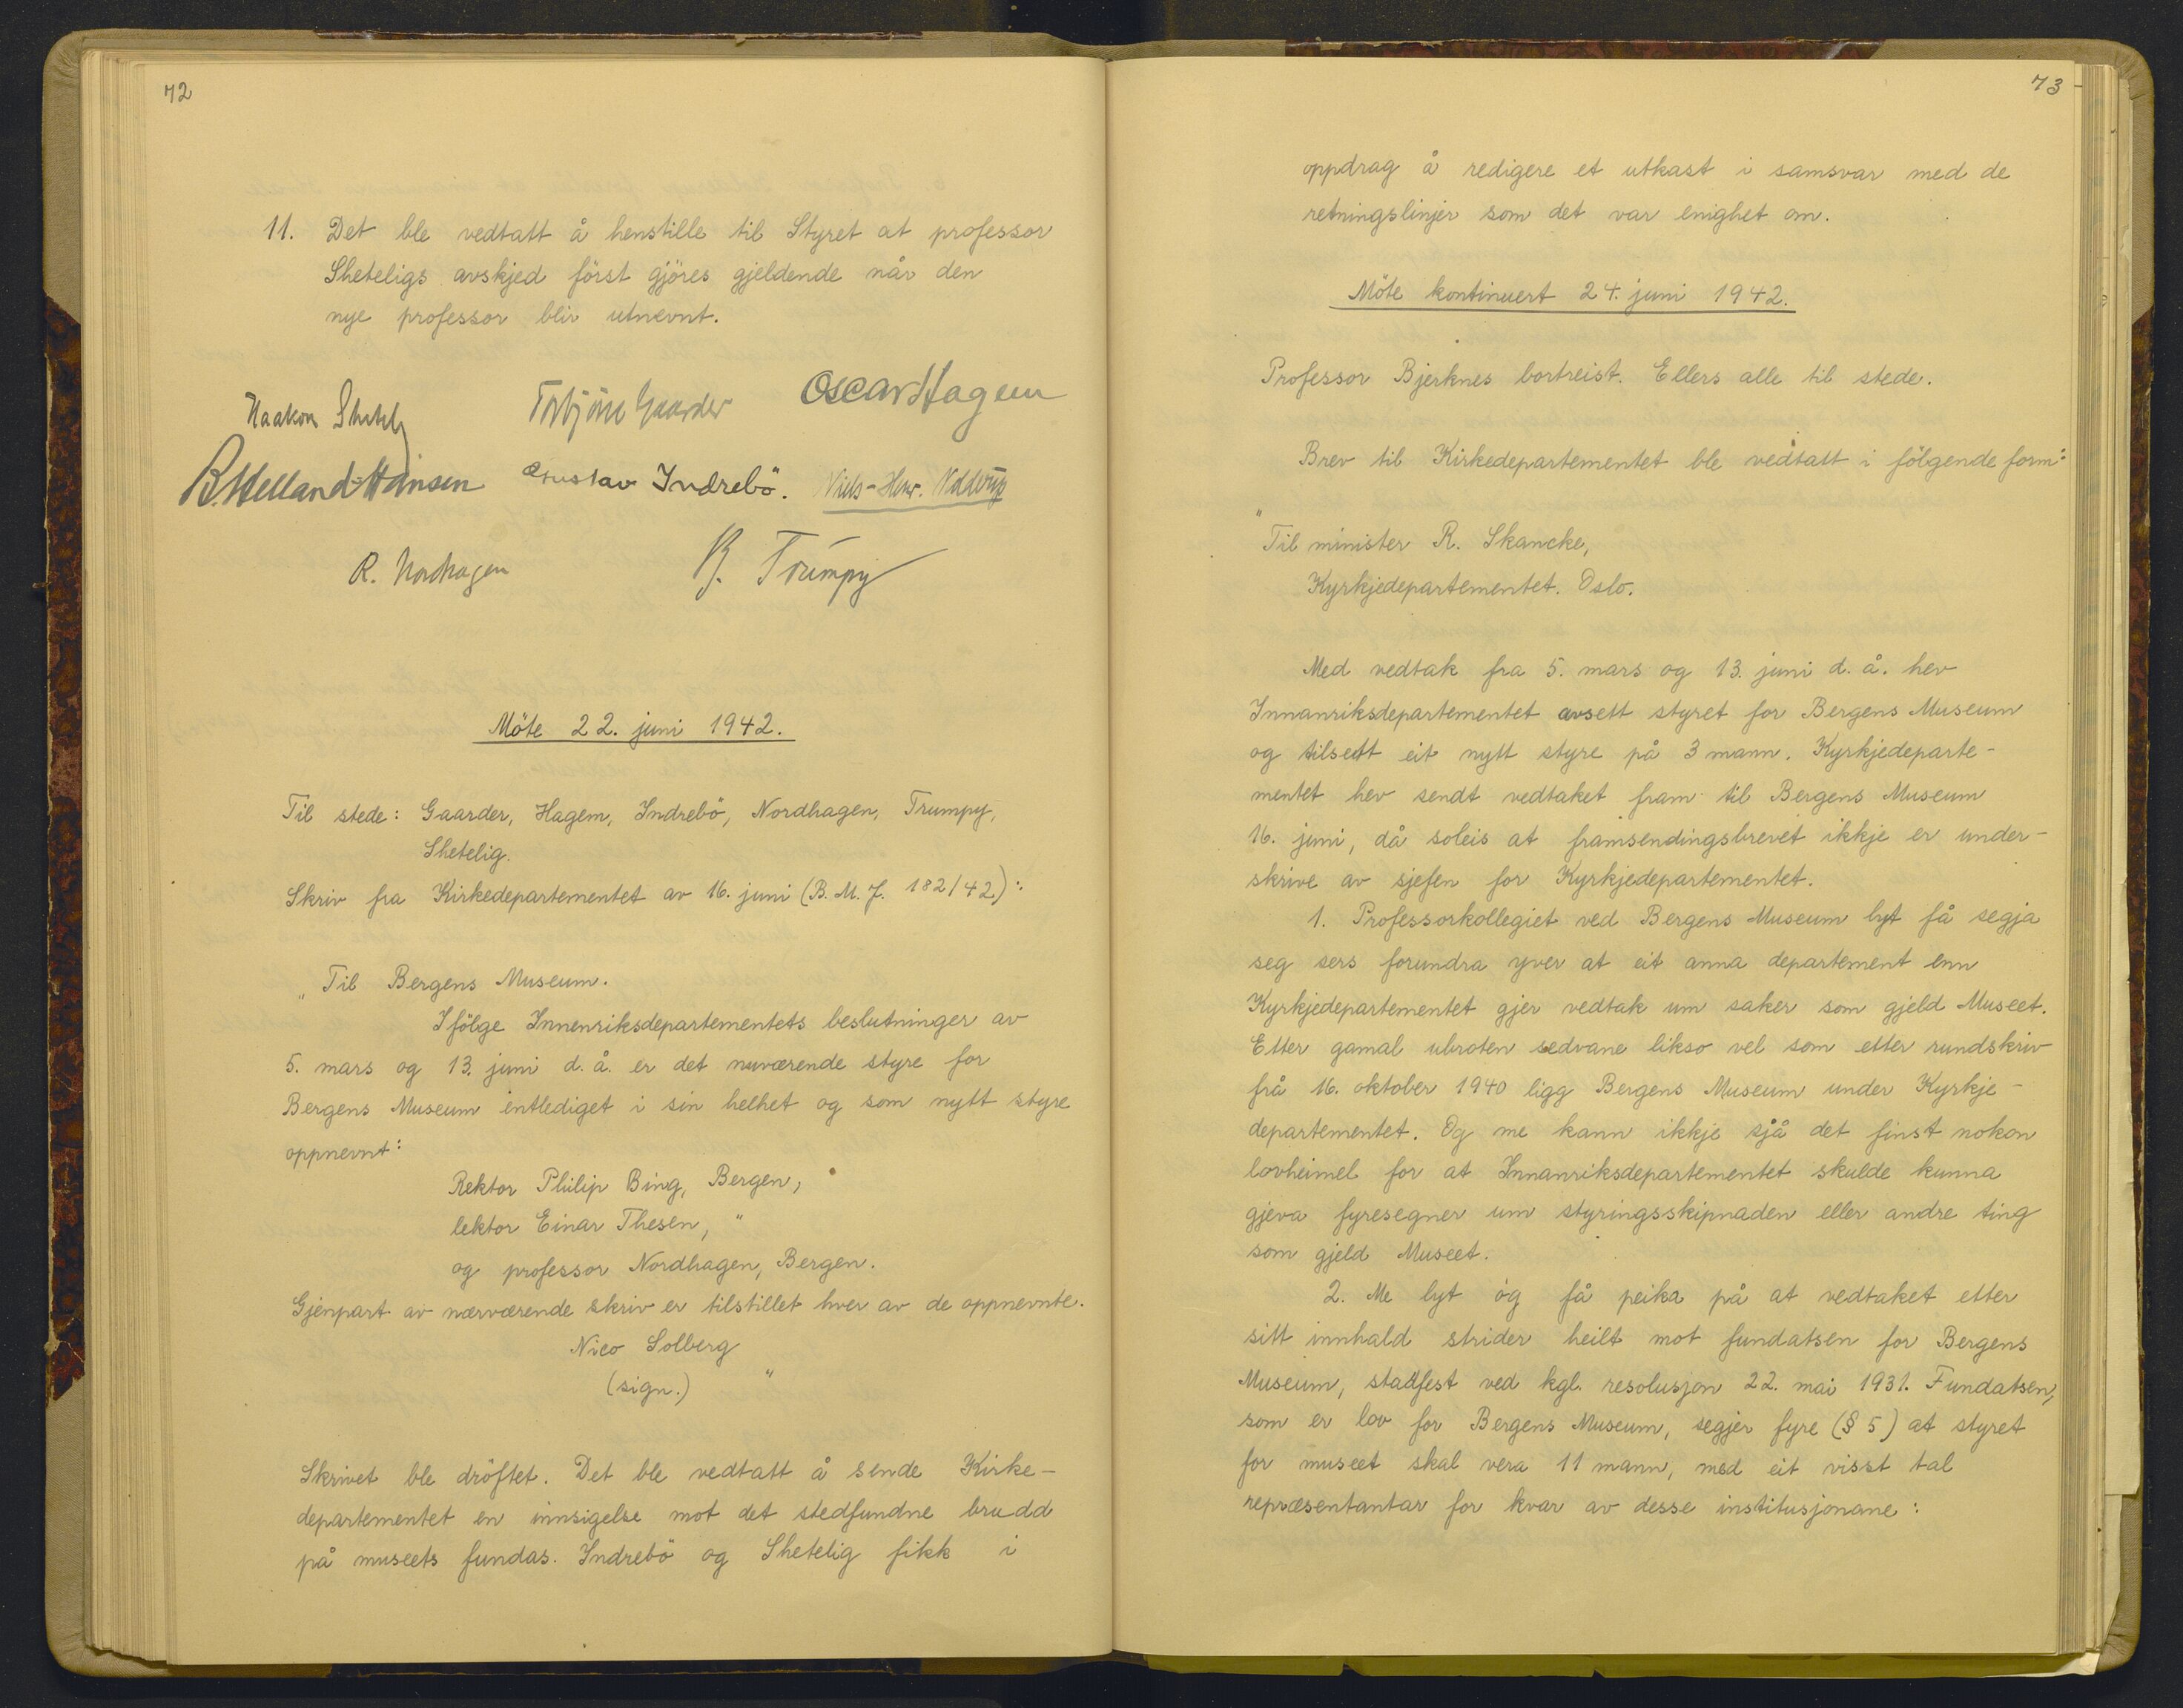 72
11. Det ble vedtatt å henstille til Styret at professor
Sheteligs avskjed först gjöres gjeldende når den
nye professor blir utnevnt.
Haakon Shetelig Torbjörn Gaarder Oscar Hagem
B. Helland-Hansen Gustav Indrebö. Niels-Henr.
R. Nordhagen B. Trumpy
Möte 22. juni 1942.
Til stede: Gaarder, Hagem, Indrebö, Nordhagen, Trumpy,
Shetelig.
Skriv fra Kirkedepartementet av 16. juni (B. M. J. 182/42):
„Til Bergens Museum.
Ifölge Innenriksdepartementets beslutninger av
5. mars og 13. juni d. å. er det nuværende styre for
Bergens Museum entlediget i sin helhet og som nytt styre
oppnevnt:
Rektor Philip Bing, Bergen,
lektor Einar Thesen, "
og professor Nordhagen, Bergen.
Gjenpart av nærværende skriv er tilstillet hver av de oppnevnte.
Nico Solberg
(sign.) "
Skrivet ble dröftet. Det ble vedtatt å sende Kirke-
departementet en innsigelse mot det stedfundne brudd
på museets fundas. Indrebö og Shetelig fikk i
73
oppdrag å redigere et utkast i samsvar med de
retningslinjer som det var enighet om.
Möte kontinuert 24. juni 1942.
Professor Bjerknes bortreist. Ellers alle til stede.
Brev til Kirkedepartementet ble vedtatt i fölgende form:
"Til minister R. Skancke,
Kyrkjedepartementet. Oslo.
Med vedtak fra 5. mars og 13. juni d. å. hev
Innanriksdepartementet avsett styret for Bergens Museum
og tilsett eit nytt styre på 3 mann. Kyrkjedeparte-
mentet hev sendt vedtaket fram til Bergens Museum
16. juni, då soleis at framsendingsbrevet ikkje er under-
skrive av sjefen for Kyrkjedepartementet.
1. Professorkollegiet ved Bergens Museum lyt få segja
seg sers forundra yver at eit anna departement enn
Kyrkjedepartementet gjer vedtak um saker som gjeld Museet.
Etter gamal ubroten sedvane likso vel som etter rundskriv
frå 16. oktober 1940 ligg Bergens Museum under Kyrkje-
departementet. Og me kann ikkje sjå det finst nokon
lovheimel for at Innanriksdepartementet skulde kunna
gjeva fyresegner um styringsskipnaden eller andre ting
som gjeld Museet.
2. Me lyt óg få peika på at vedtaket etter
sitt innhald strider heilt mot fundatsen for Bergens
Museum, stadfest ved kgl. resolusjon 22. mai 1931. Fundatsen,
som er lov for Bergens Museum, segjer fyre (§ 5) at styret
for museet skal vera 11 mann, med eit visst tal
repræsentantar for kvar av desse institusjonane: